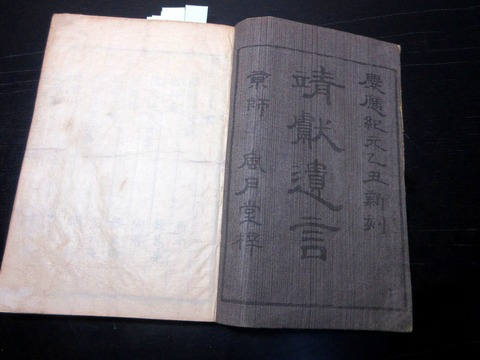 慶應紀元乙丑新刻
靖獻遺言
京師 風月堂梓